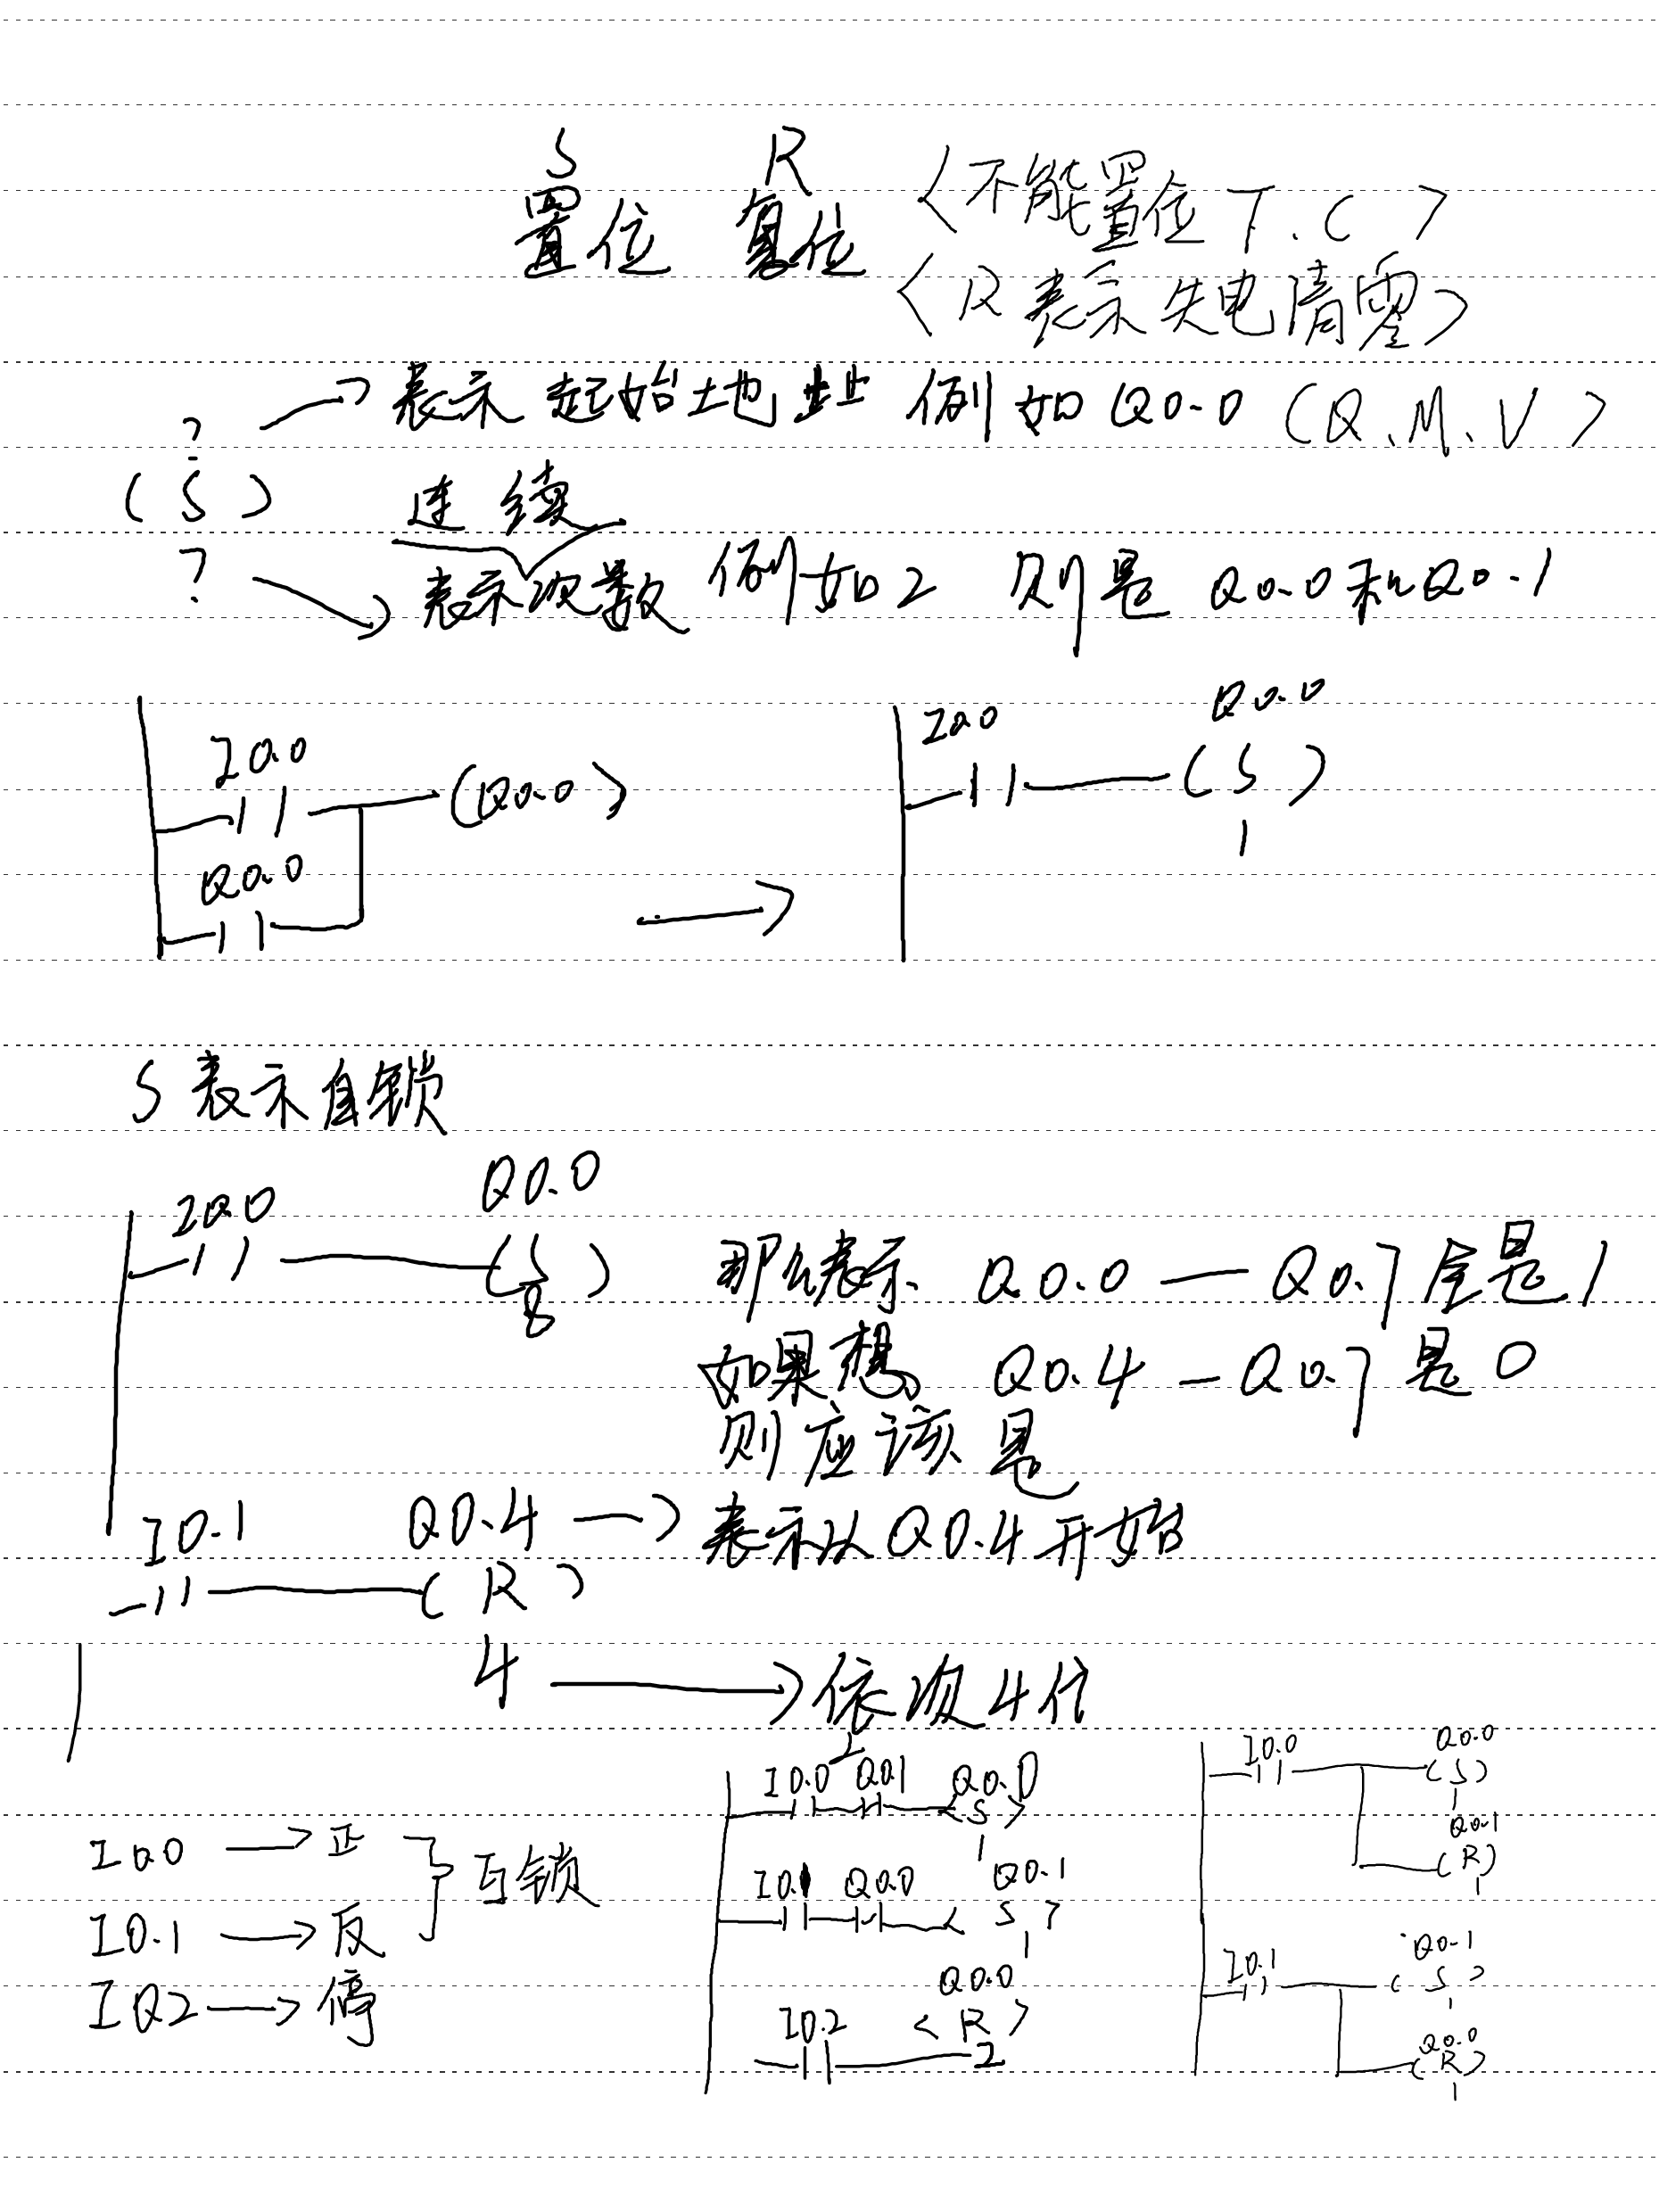 S R
置位 复位 〈不能置位 T.C〉
〈R表示失电清零〉
? → 表示起始地址 例如Q0.0 (Q.M.V)
( S ) 连续
? → 表示次数 例如2 则是 Q0.0和Q0.1
I0.0 (Q0.0)
Q0.0
→
I0.0 Q0.0
( S )
1
S表示自锁
I0.0 Q0.0
( S ) 那么表示 Q0.0 — Q0.7全是1
8
如果想 Q0.4 — Q0.7是0
则应该是
I0.1 Q0.4 → 表示从Q0.4开始
( R )
4 → 依次4位
I0.0 → 正 } 互锁
I0.1 → 反
I0.2 → 停
I0.0 Q0.1 Q0.0
( S )
1
I0.1 Q0.0 Q0.1
( S )
1
Q0.0
I0.2 ( R )
2
I0.0 Q0.0
( S )
1
Q0.1
( R )
1
I0.1 Q0.1
( S )
1
Q0.0
( R )
1